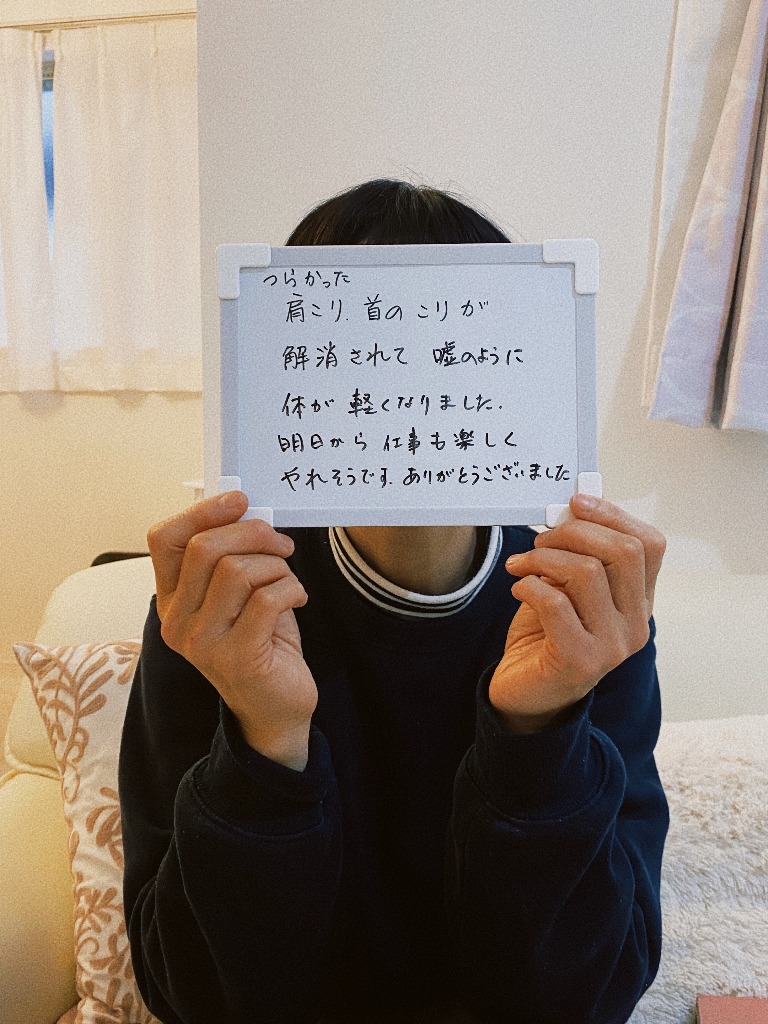 つらかった
肩こり.首のこりが
解消されて 嘘のように
体が軽くなりました.
明日から仕事も楽しく
やれそうです.ありがとうございました